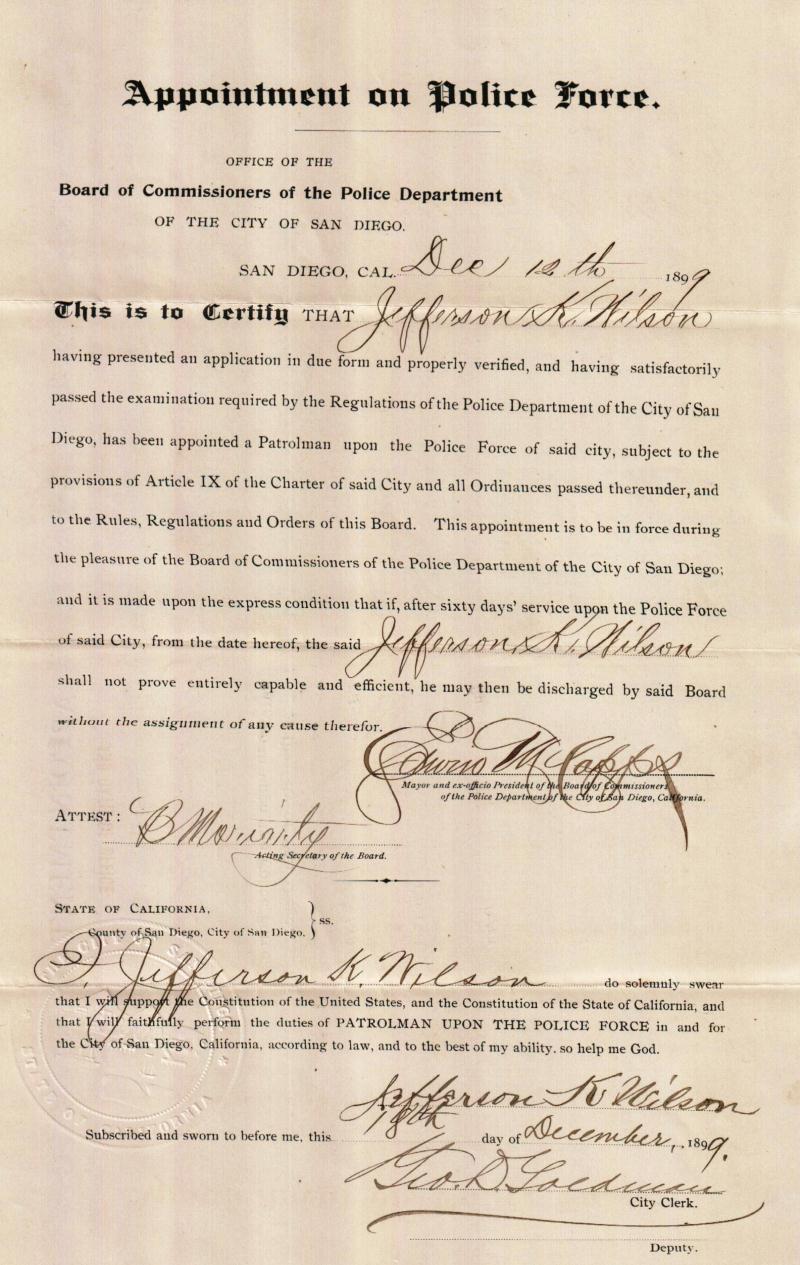 Appointment on Police Force.
OFFICE OF THE
Board of Commissioners of the Police Department
OF THE CITY OF SAN DIEGO.
SAN DIEGO, CAL. Dec 12th 1899
This is to Certify THAT Jefferson K. Wilson
having presented an application in due form and properly verified, and having satisfactorily
passed the examination required by the Regulations of the Police Department of the City of San
Diego, has been appointed a Patrolman upon the Police Force of said city, subject to the
provisions of Article IX of the Charter of said City and all Ordinances passed thereunder, and
to the Rules, Regulations and Orders of this Board. This appointment is to be in force during
the pleasure of the Board of Commissioners of the Police Department of the City of San Diego;
and it is made upon the express condition that if, after sixty days' service upon the Police Force
of said City, from the date hereof, the said Jefferson K. Wilson
shall not prove entirely capable and efficient, he may then be discharged by said Board
without the assignment of any cause therefor.
Edwin M. Capps
Mayor and ex-officio President of the Board of Commissioners
of the Police Department of the City of San Diego, California.
ATTEST: B Moriarity
Acting Secretary of the Board.
STATE OF CALIFORNIA,
County of San Diego, City of San Diego. } ss.
I, Jefferson K. Wilson do solemnly swear
that I will support the Constitution of the United States, and the Constitution of the State of California, and
that I will faithfully perform the duties of PATROLMAN UPON THE POLICE FORCE in and for
the City of San Diego, California, according to law, and to the best of my ability. so help me God.
Jefferson K Wilson
Subscribed and sworn to before me, this 18th day of December, 1899.
Geo. D. Goldman
City Clerk.
Deputy.